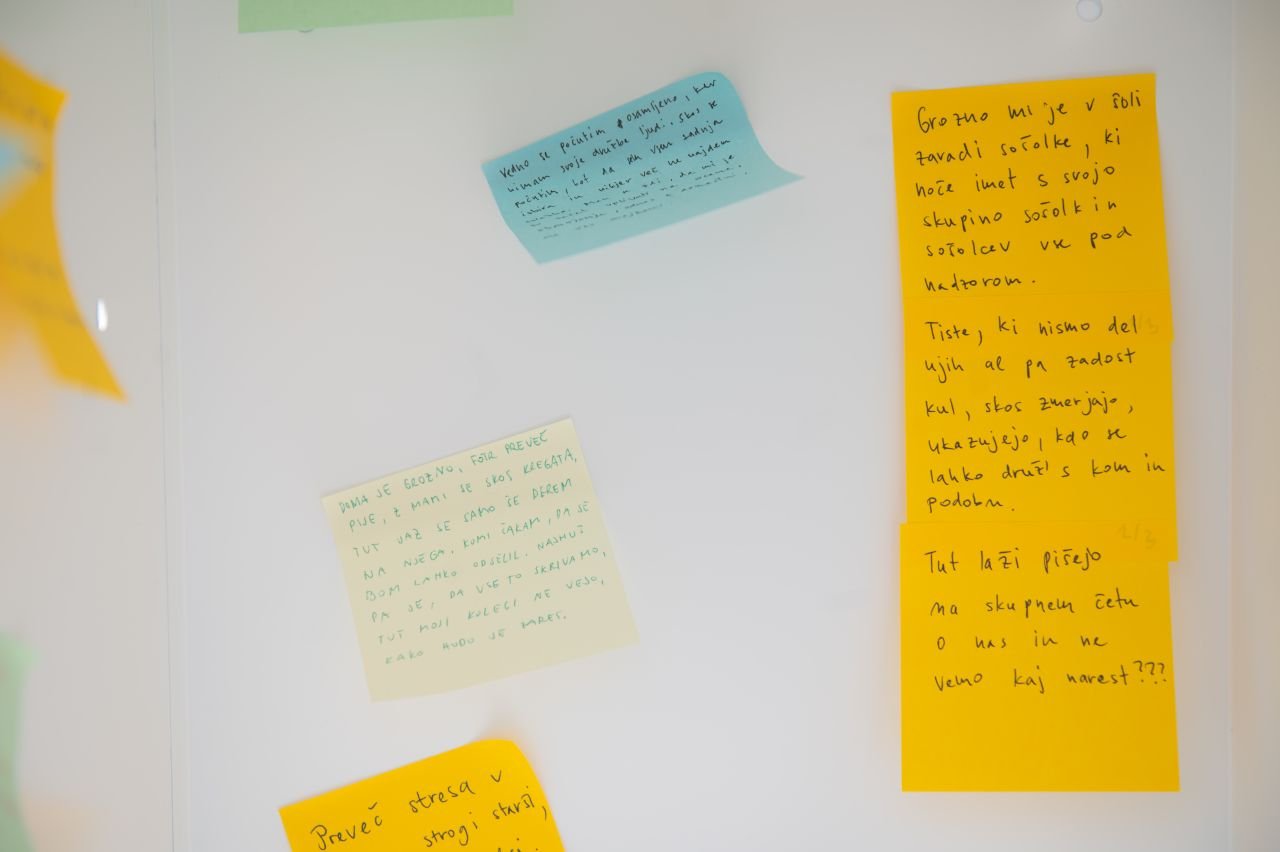 Vedno se počutim osamljeno, ker
nimam svoje družbe ljudi. Skos se
počutim, kot da sm vsem zadnja
izbira in nikjer več ne najdem
Grozno mi je v šoli
zaradi sošolke, ki
hoče imet s svojo
skupino sošolk in
sošolcev vse pod
nadzorom.
Tiste, ki nismo del
njih al pa zadost
kul, skos zmerjajo,
ukazujejo, kdo se
lahko druž' s kom in
podobn.
2/3
Tut laži pišejo
na skupnem četu
o nas in ne
vemo kaj narest???
DOMA JE GROZNO, FOTR PREVEČ
PIJE, Z MAMI SE SKOS KREGATA,
TUT JAZ SE SAMO ŠE DEREM
NA NJEGA. KOMI ČAKAM, DA SE
BOM LAHKO ODSELIL. NAJHUJŠ
PA JE, DA VSE TO SKRIVAMO,
TUT MOJI KOLEGI NE VEJO,
KAKO HUDO JE ZARES.
Preveč stresa v
strogi starši,